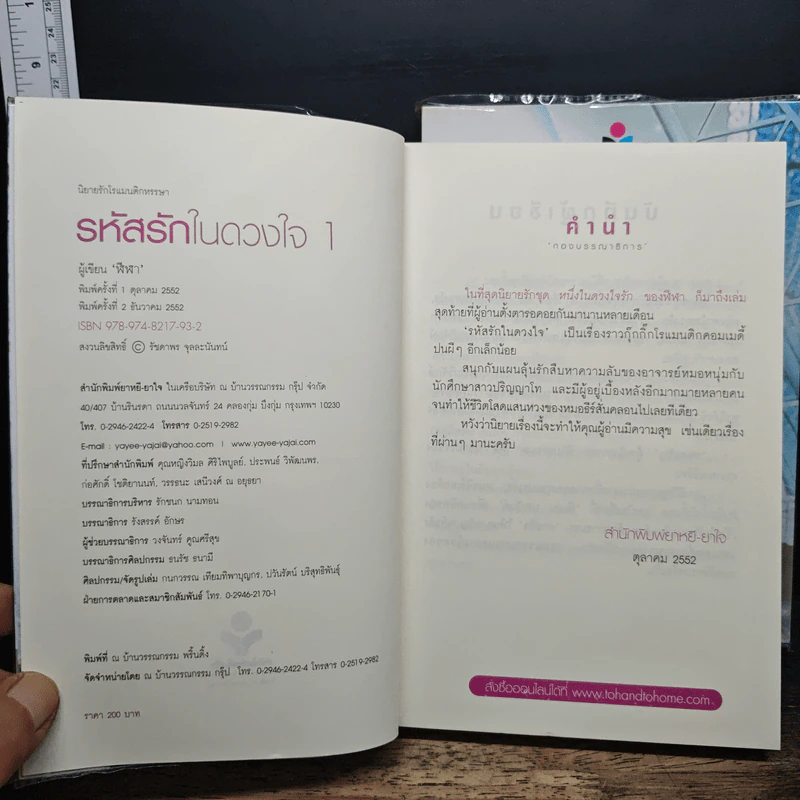 นิยายรักโรแมนติกหรรษา
รหัสรักในดวงใจ 1
ผู้เขียน 'ฬีฬา'
พิมพ์ครั้งที่ 1 ตุลาคม 2552
พิมพ์ครั้งที่ 2 ธันวาคม 2552
ISBN 978-974-8217-93-2
สงวนลิขสิทธิ์ © รัชดาพร จุลละนันทน์
สำนักพิมพ์ยาหยี-ยาใจ ในเครือบริษัท ณ บ้านวรรณกรรม กรุ๊ป จำกัด
40/407 บ้านรินรดา ถนนนวลจันทร์ 24 คลองกุ่ม บึงกุ่ม กรุงเทพฯ 10230
โทร. 0-2946-2422-4 โทรสาร 0-2519-2982
E-mail : yayee-yajai@yahoo.com | www.yayee-yajai.com
ที่ปรึกษาสำนักพิมพ์ คุณหญิงวิมล ศิริไพบูลย์, ประพนธ์ วิพัฒนพร,
ก่อศักดิ์ ไชติยานนท์, วรรธนะ เสนีวงศ์ ณ อยุธยา
บรรณาธิการบริหาร รักชนก นามทอน
บรรณาธิการ รังสรรค์ อักษร
ผู้ช่วยบรรณาธิการ วงจันทร์ คูณศรีสุข
บรรณาธิการศิลปกรรม ธนรัช ธนามี
ศิลปกรรม/จัดรูปเล่ม กนกวรรณ เทียมทิพาบุญกร, ปวันรัตน์ บริสุทธิพันธุ์
ฝ่ายการตลาดและสมาชิกสัมพันธ์ โทร. 0-2946-2170-1
พิมพ์ที่ ณ บ้านวรรณกรรม พริ้นติ้ง
จัดจำหน่ายโดย ณ บ้านวรรณกรรม กรุ๊ป โทร. 0-2946-2422-4 โทรสาร 0-2519-2982
ราคา 200 บาท
คำนำ
"กองบรรณาธิการ"
ในที่สุดนิยายรักชุด หนึ่งในดวงใจรัก ของฬีฬา ก็มาถึงเล่ม
สุดท้ายที่ผู้อ่านตั้งตารอคอยกันมานานหลายเดือน
'รหัสรักในดวงใจ' เป็นเรื่องราวกุ๊กกิ๊กโรแมนติกคอมเมดี้
ปนผีๆ อีกเล็กน้อย
สนุกกับแผนลุ้นรักสืบหาความลับของอาจารย์หมอหนุ่มกับ
นักศึกษาสาวปริญญาโท และมีผู้อยู่เบื้องหลังอีกมากมายหลายคน
จนทำให้ชีวิตโสดแสนหวงของหมอธีร์สั่นคลอนไปเลยทีเดียว
หวังว่านิยายเรื่องนี้จะทำให้คุณผู้อ่านมีความสุข เช่นเดียวเรื่อง
ที่ผ่านๆ มานะครับ
สำนักพิมพ์ยาหยี-ยาใจ
ตุลาคม 2552
สั่งซื้อออนไลน์ได้ที่ www.tohandtohome.com